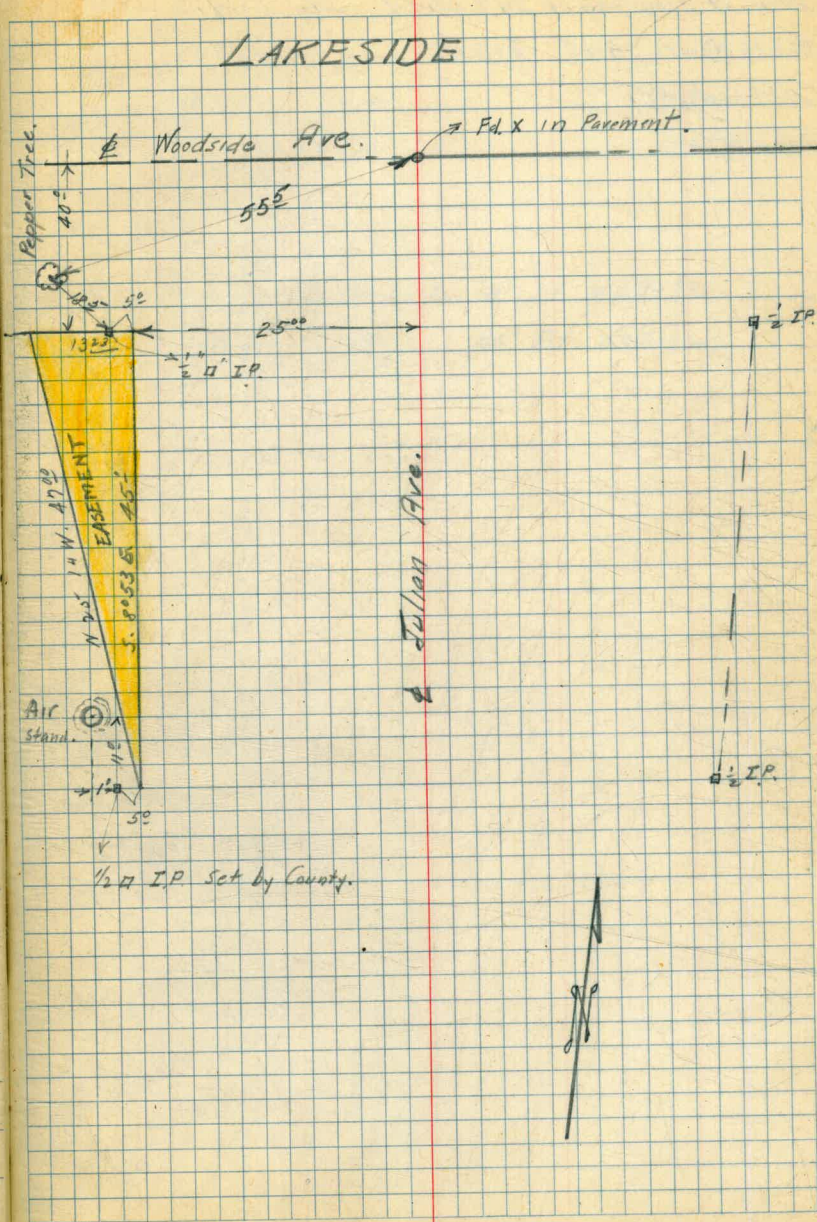 LAKESIDE
Pepper Tree.
℄ Woodside Ave.
Fd. X in Pavement.
40⁰
55⁵
5⁰
13²³
25⁰⁰
½" □ I.P.
½ I.P.
EASEMENT
47⁰⁰
S. 8°53 E. 45
℄ Julian Ave.
Air
Stand.
11⁰
1½
5⁰
½ I.P.
1/2 □ I.P. Set by County.
N